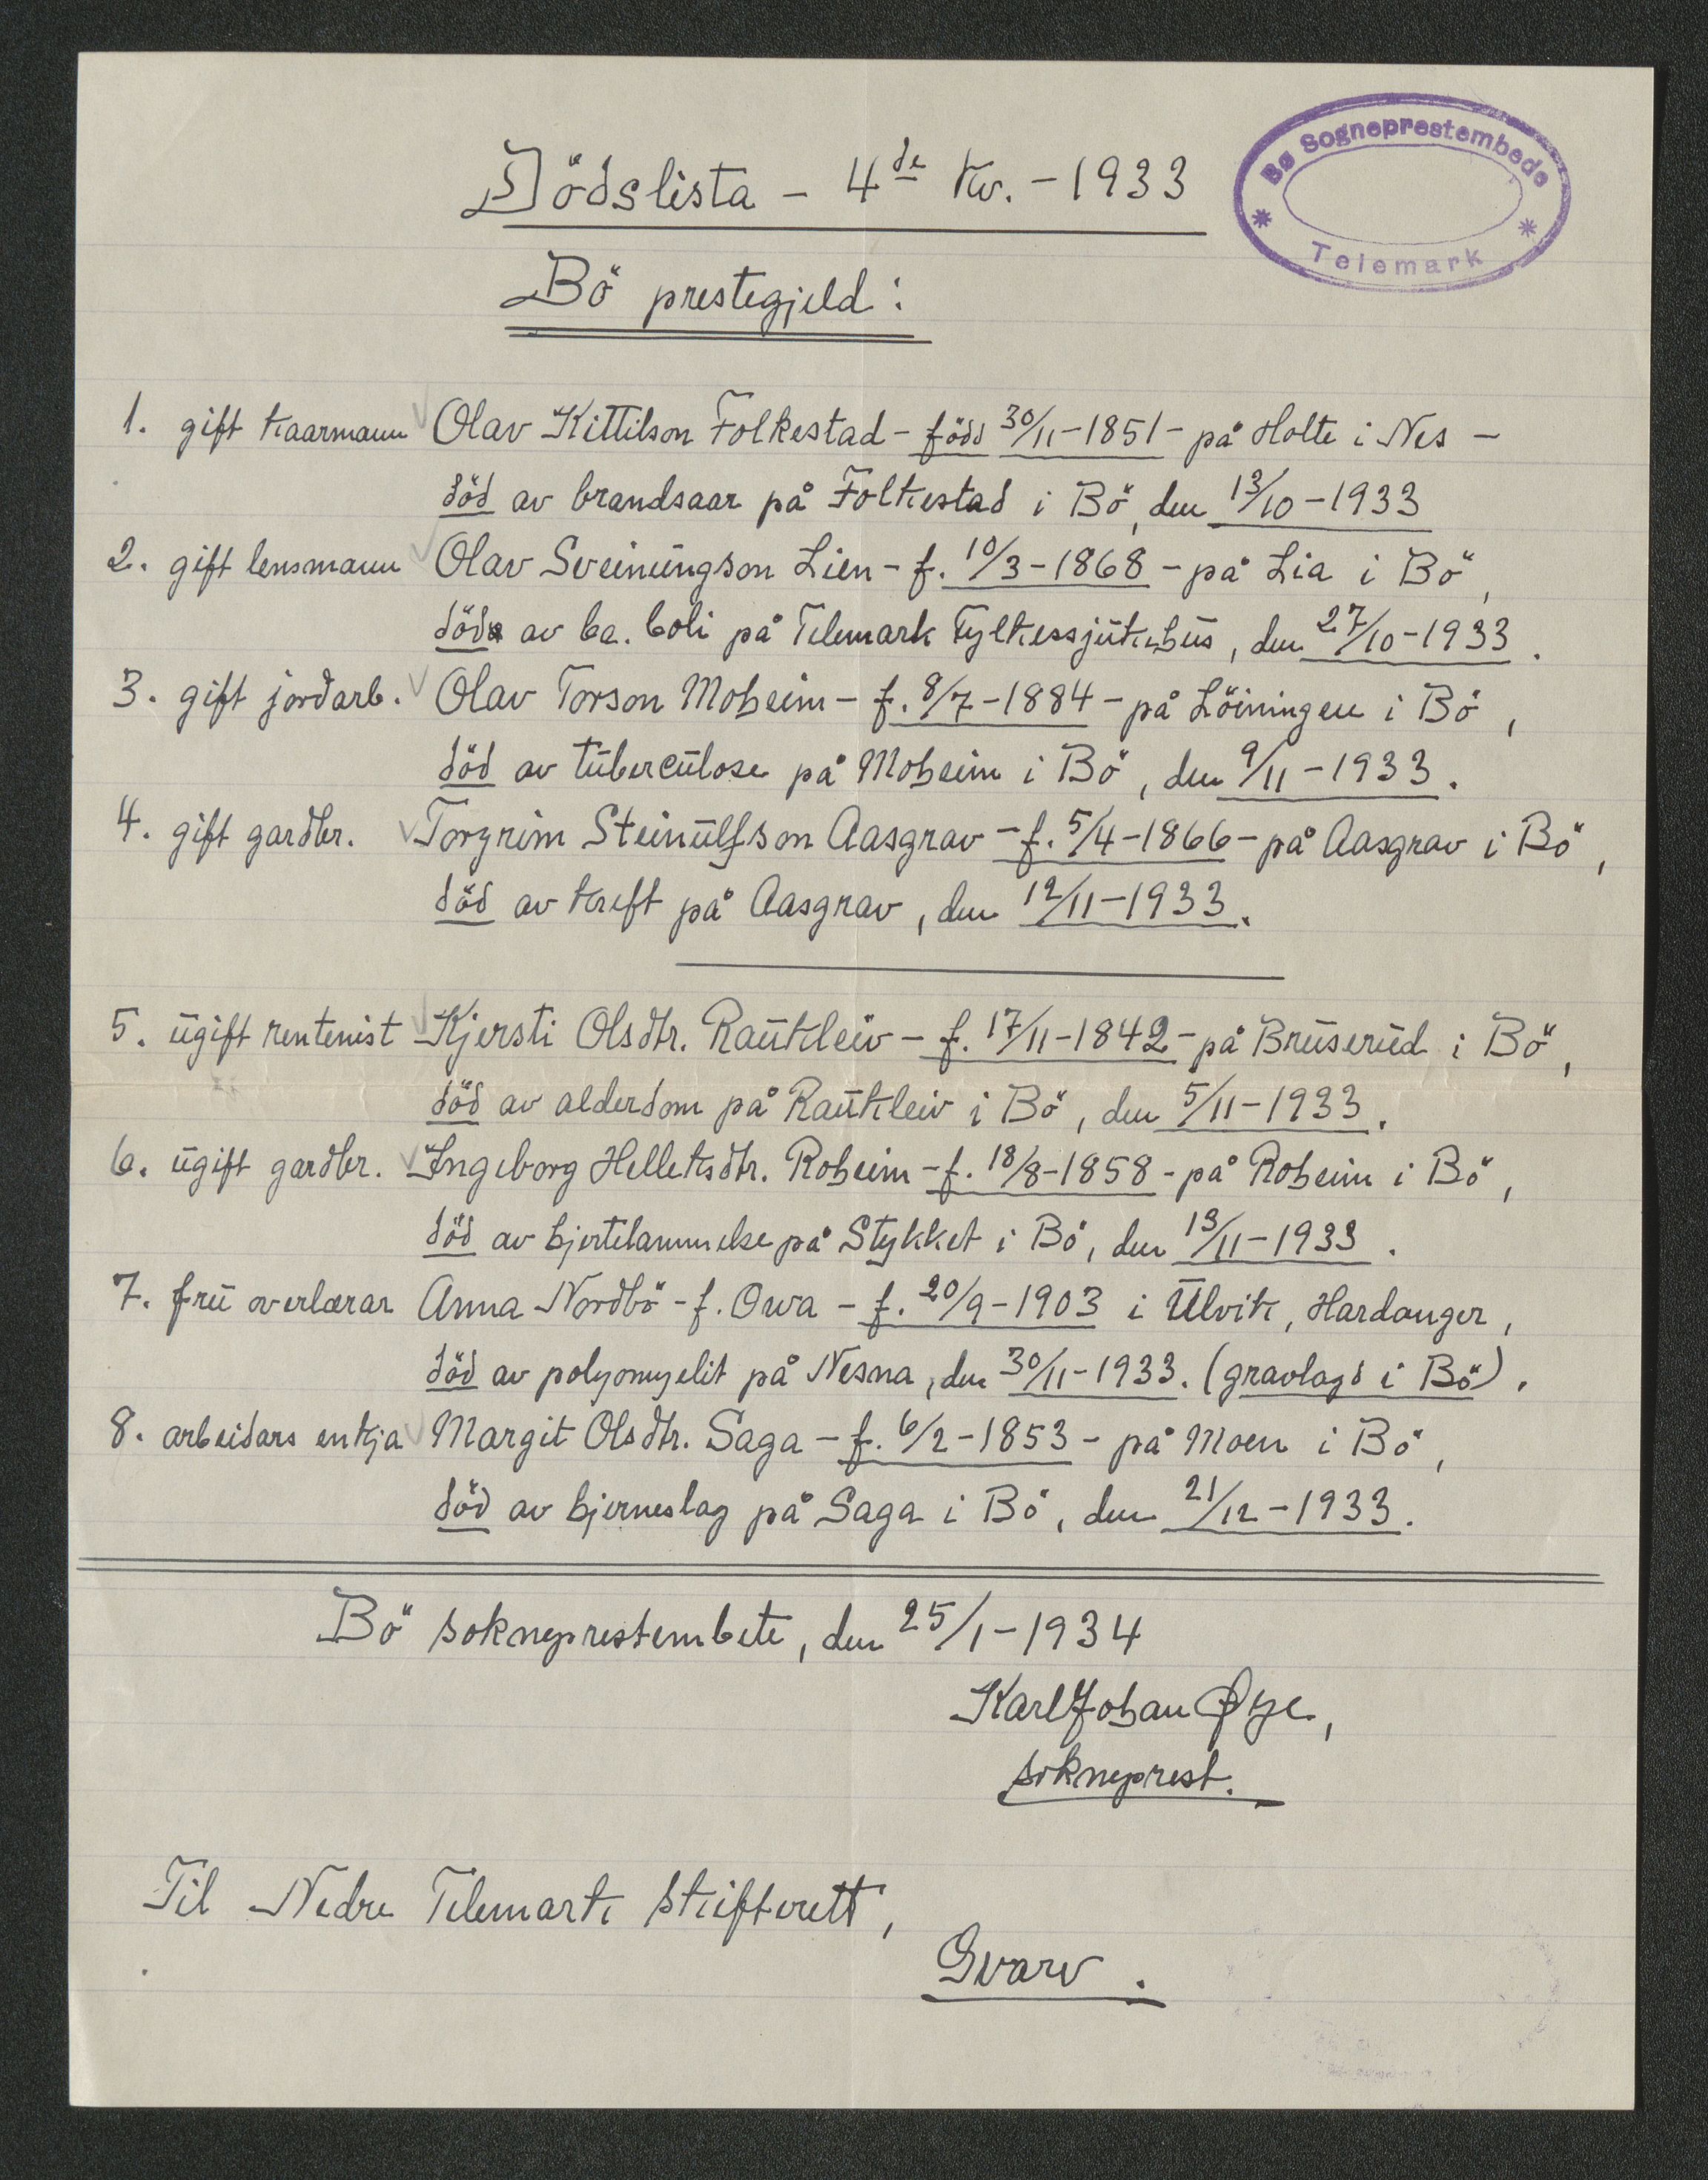 Bø Sogneprestembede
Telemark
Dödslista - 4de kv. - 1933
Bö prestegjeld:
1. gift kaarmann Olav Kittilson Folkestad - född 30/11-1851 - på Holte i Nes -
död av brandsaar på Folkestad i Bö, den 13/10-1933
2. gift lensmann Olav Sveinungson Lien - f. 10/3-1868 - på Lia i Bö,
död av ba. coli på Telemark Fylkessjukehus, den 27/10-1933.
3. gift jordarb. Olav Torson Moheim - f. 8/7-1884 - på Löiningen i Bö,
död av tuberculose på Moheim i Bö, den 9/11-1933.
4. gift gardbr. Torgrim Steinulfson Aasgrav - f. 5/4-1866 - på Aasgrav i Bö,
död av kreft på Aasgrav, den 12/11-1933.
5. ugift rentenist Kjersti Olsdtr. Raukleiv - f. 17/11-1842 - på Bruserud i Bö,
död av alderdom på Raukleiv i Bö, den 5/11-1933.
6. ugift gardbr. Ingeborg Helleksdtr. Roheim - f. 18/8-1858 - på Roheim i Bö,
död av hjertelammelse på Stykket i Bö, den 13/11-1933.
7. fru overlærar Anna Nordbö - f. Owa - f. 20/9-1903 i Ulvik, Hardanger,
död av polyomyelit på Nesna, den 30/11-1933. (gravlagd i Bö).
8. arbeidars enkja Margit Olsdtr. Saga - f. 6/2-1853 - på Moen i Bö,
död av hjerneslag på Saga i Bö, den 21/12-1933.
Bö sokneprestembete, den 25/1-1934
Karl Johan Øye,
sokneprest.
Til Nedre Telemark skifterett,
Gvarv.